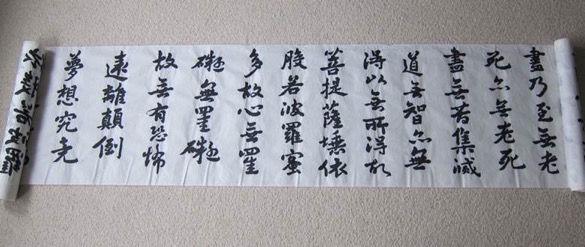 盡乃至無老
死亦無老死
盡無苦集滅
道無智亦無
得以無所得故
菩提薩埵依
般若波羅蜜
多故心無罣
礙無罣礙
故無有恐怖
遠離顛倒
夢想究竟